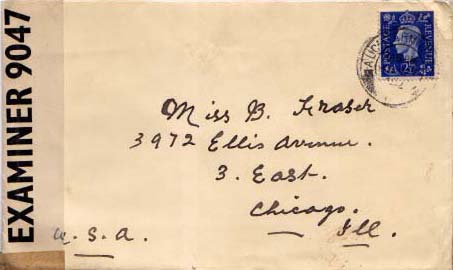 EXAMINER 9047
POSTAGE REVENUE
2½D
Miss B. Fraser
3972 Ellis Avenue.
3. East.
Chicago.
Ill.
U. S. A.